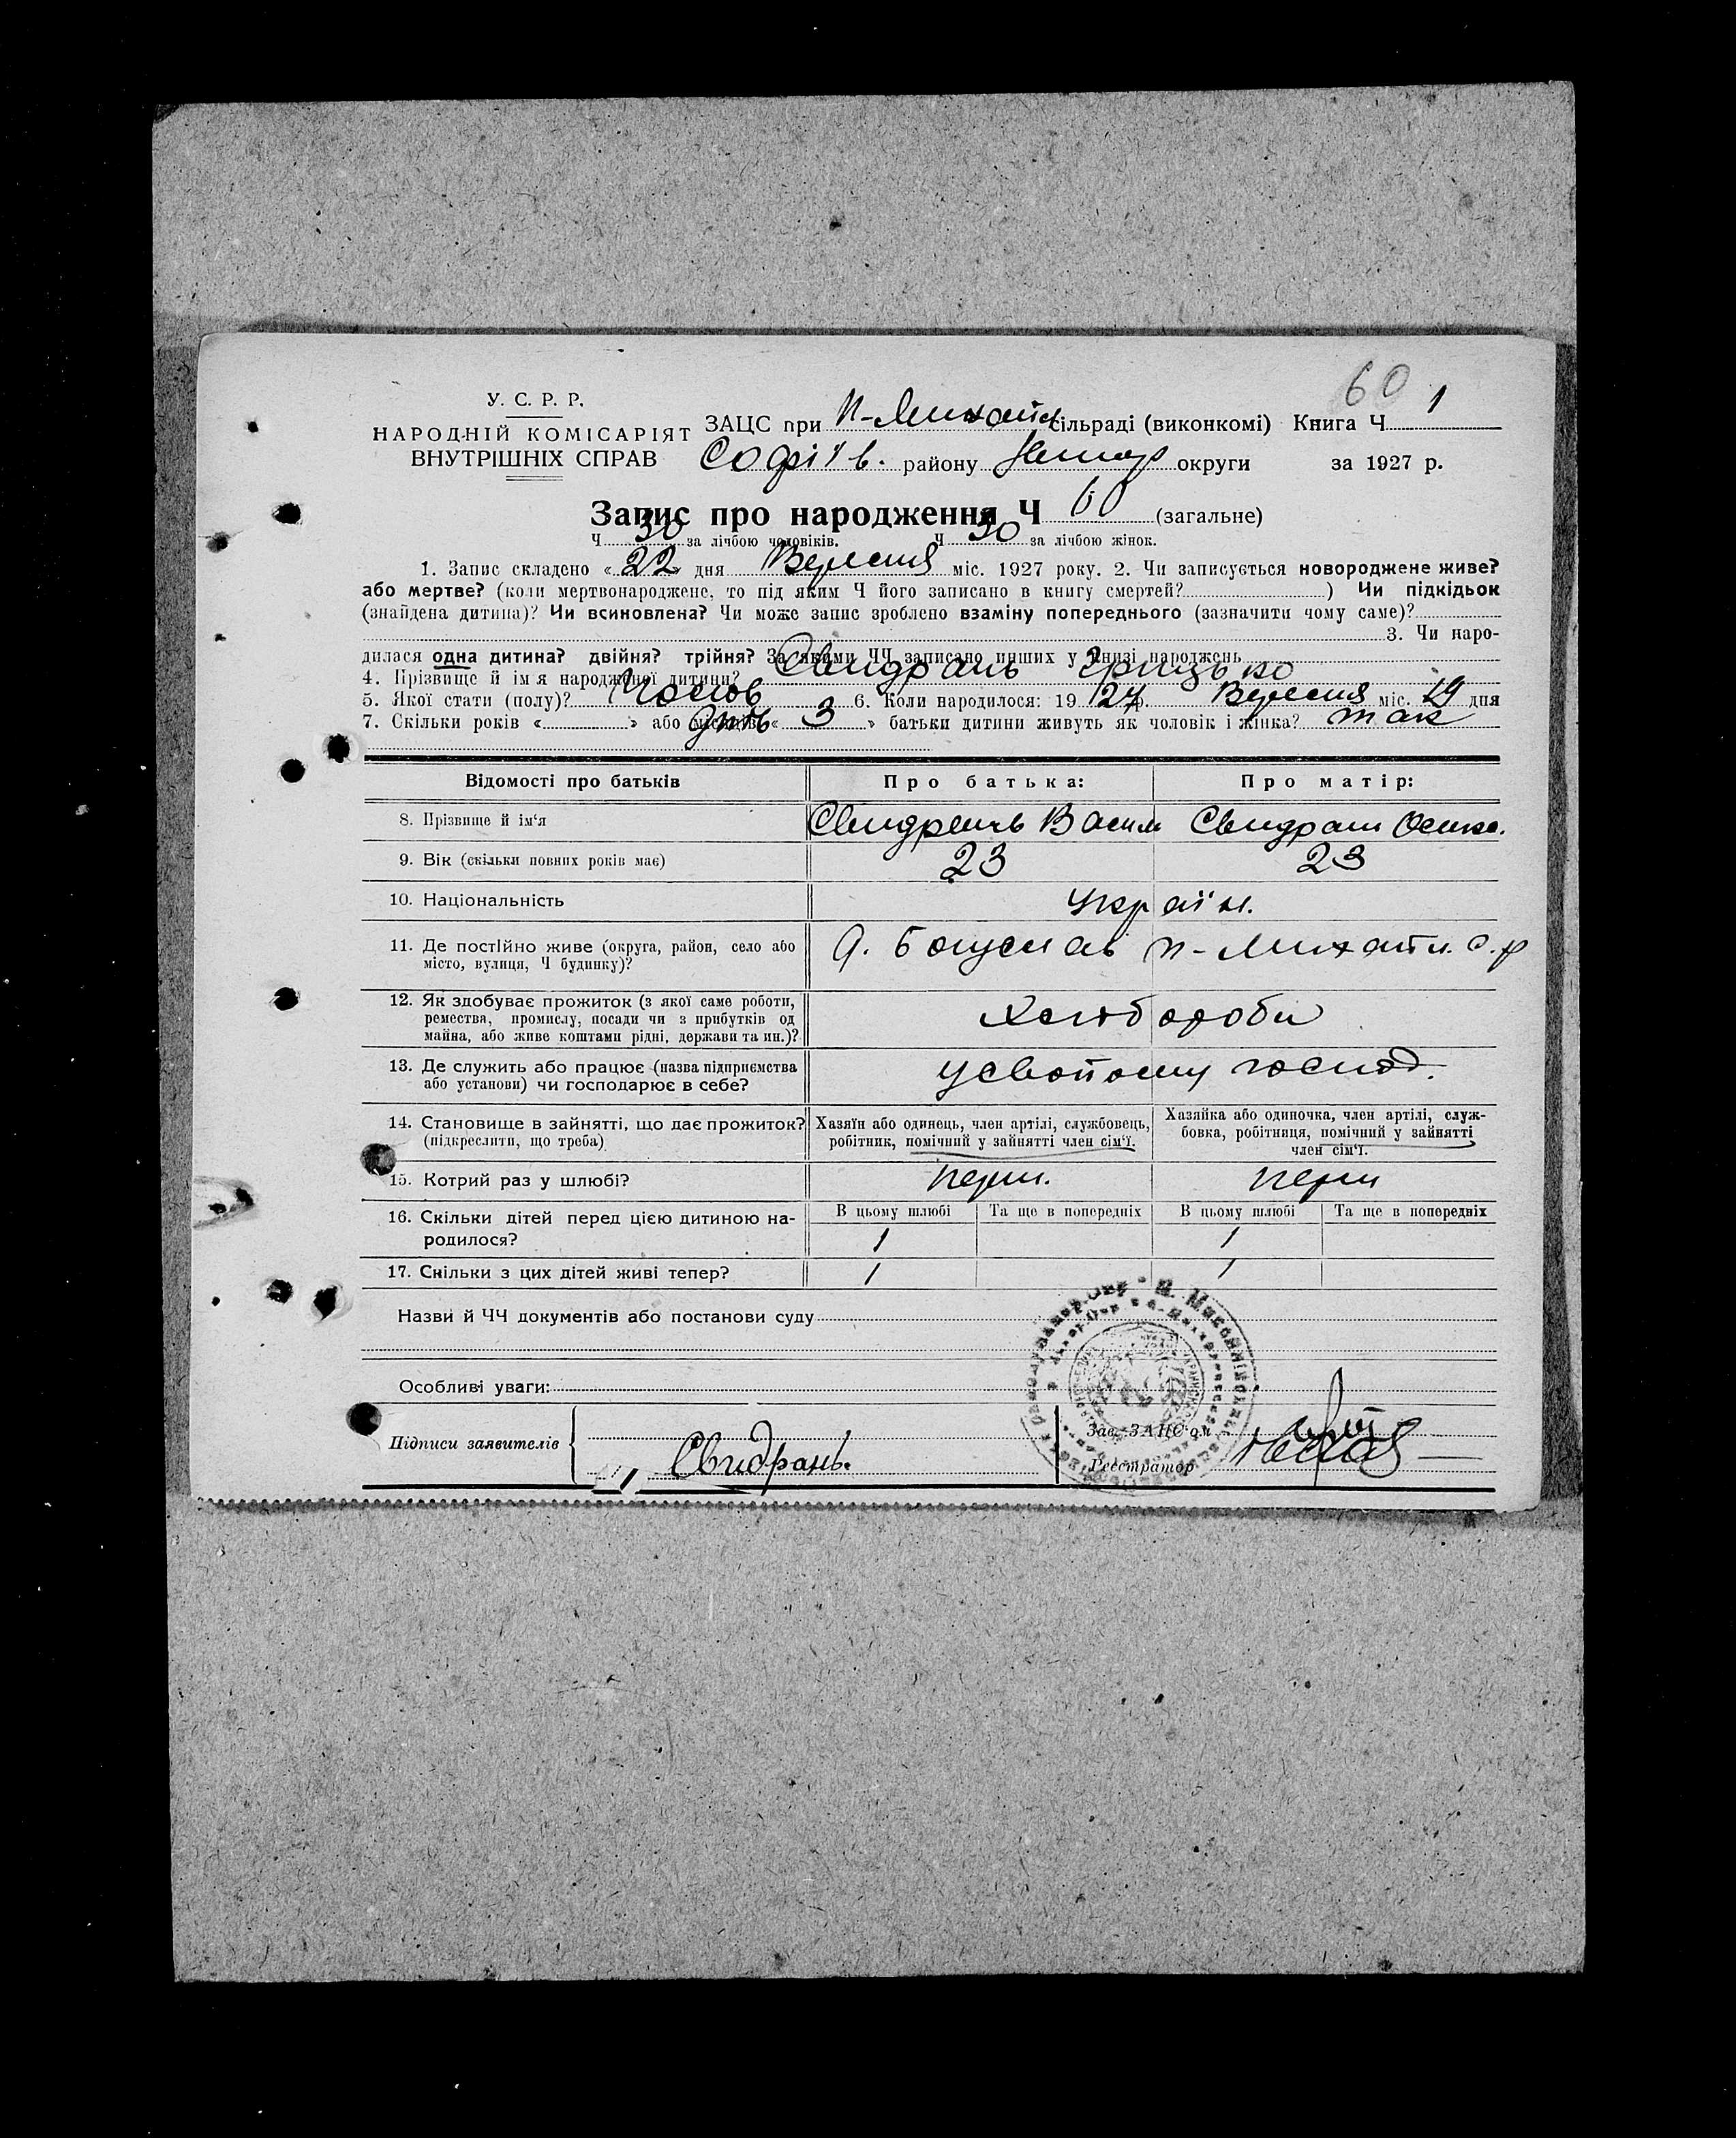 60
У. С. Р. Р.
НАРОДНІЙ КОМІСАРІЯТ
ВНУТРІШНІХ СПРАВ
ЗАЦС при П-Михайл сільраді (виконкомі) Книга Ч 1
Софіїв. району округи за 1927 р.
Запис про народження Ч 60 (загальне)
Ч 30 за лічбою чоловіків. Ч 30 за лічбою жінок.
1. Запис складено « 22 » дня Вересня міс. 1927 року. 2. Чи записується новороджене живе?
або мертве? (коли мертвонароджене, то під яким Ч його записано в книгу смертей? ) Чи підкідьок
(знайдена дитина)? Чи всиновлена? Чи може запис зроблено взаміну попереднього (зазначити чому саме)?
3. Чи наро-
дилася одна дитина? двійня? трійня? За якими ЧЧ записано инших у книзі народжень
4. Прізвище й імя народженої дитини? Свидрань Грицько
5. Якої стати (полу)? Чолов 6. Коли народилося: 19 27 р. Вересня міс. 19 дня
7. Скільки років « » або місяців « 3 » батьки дитини живуть як чоловік і жінка? так
Відомості про батьків
Про батька:
Про матір:
8. Прізвище й ім'я
Свидрань Васил
Свидрань
9. Вік (скільки повних років має)
23
23
10. Національність
Україн.
11. Де постійно живе (округа, район, село або
місто, вулиця, Ч будинку)?
Богуслав п-Михайл. с.р
12. Як здобуває прожиток (з якої саме роботи,
ремества, промислу, посади чи з прибутків од
майна, або живе коштами рідні, держави та ин.)?
Хліборобы
13. Де служить або працює (назва підприємства
або установи) чи господарює в себе?
усвойому господ.
14. Становище в зайнятті, що дає прожиток?
(підкреслити, що треба)
Хазяїн або одинець, член артілі, службовець,
робітник, помічний у зайнятті член сім'ї.
Хазяйка або одиночка, член артілі, служ-
бовка, робітниця, помічний у зайнятті
член сім'ї.
15. Котрий раз у шлюбі?
перш.
перш
16. Скільки дітей перед цією дитиною на-
родилося?
В цьому шлюбі
Та ще в попередніх
В цьому шлюбі
Та ще в попередніх
1
1
17. Скільки з цих дітей живі тепер?
1
1
Назви й ЧЧ документів або постанови суду
Особливі уваги:
Підписи заявителів
Свидрань.
Зав. ЗАЦС'ом
Реєстратор